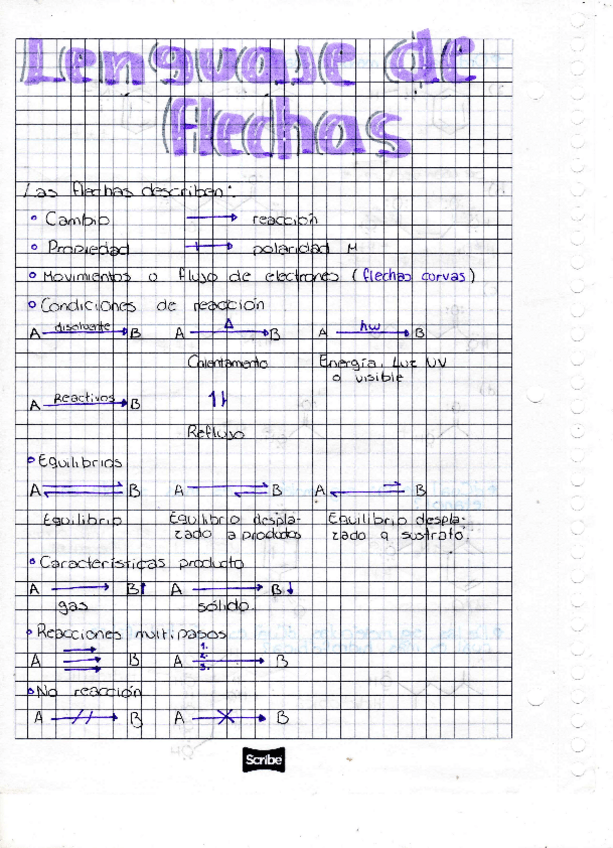 Lenguaje de
flechas
Las flechas describen:
Cambio → reacción
Propiedad polaridad M
Movimientos o flujo de electrones (flechas curvas)
Condiciones de reacción
A disolvente → B A Δ → B A hω → B
Calentamiento Energía, Luz UV
o visible
A Reactivos → B
Reflujo
Equilibrios
A ⇌ B A B A B
Equilibrio Equilibrio despla- Equilibrio despla-
zado a productos zado a sustrato.
Características producto
A → B↑ A → B↓
gas sólido.
Reacciones multipasos
A B A 1. 2. 3. → B
No reacción
A B A B
Scribe